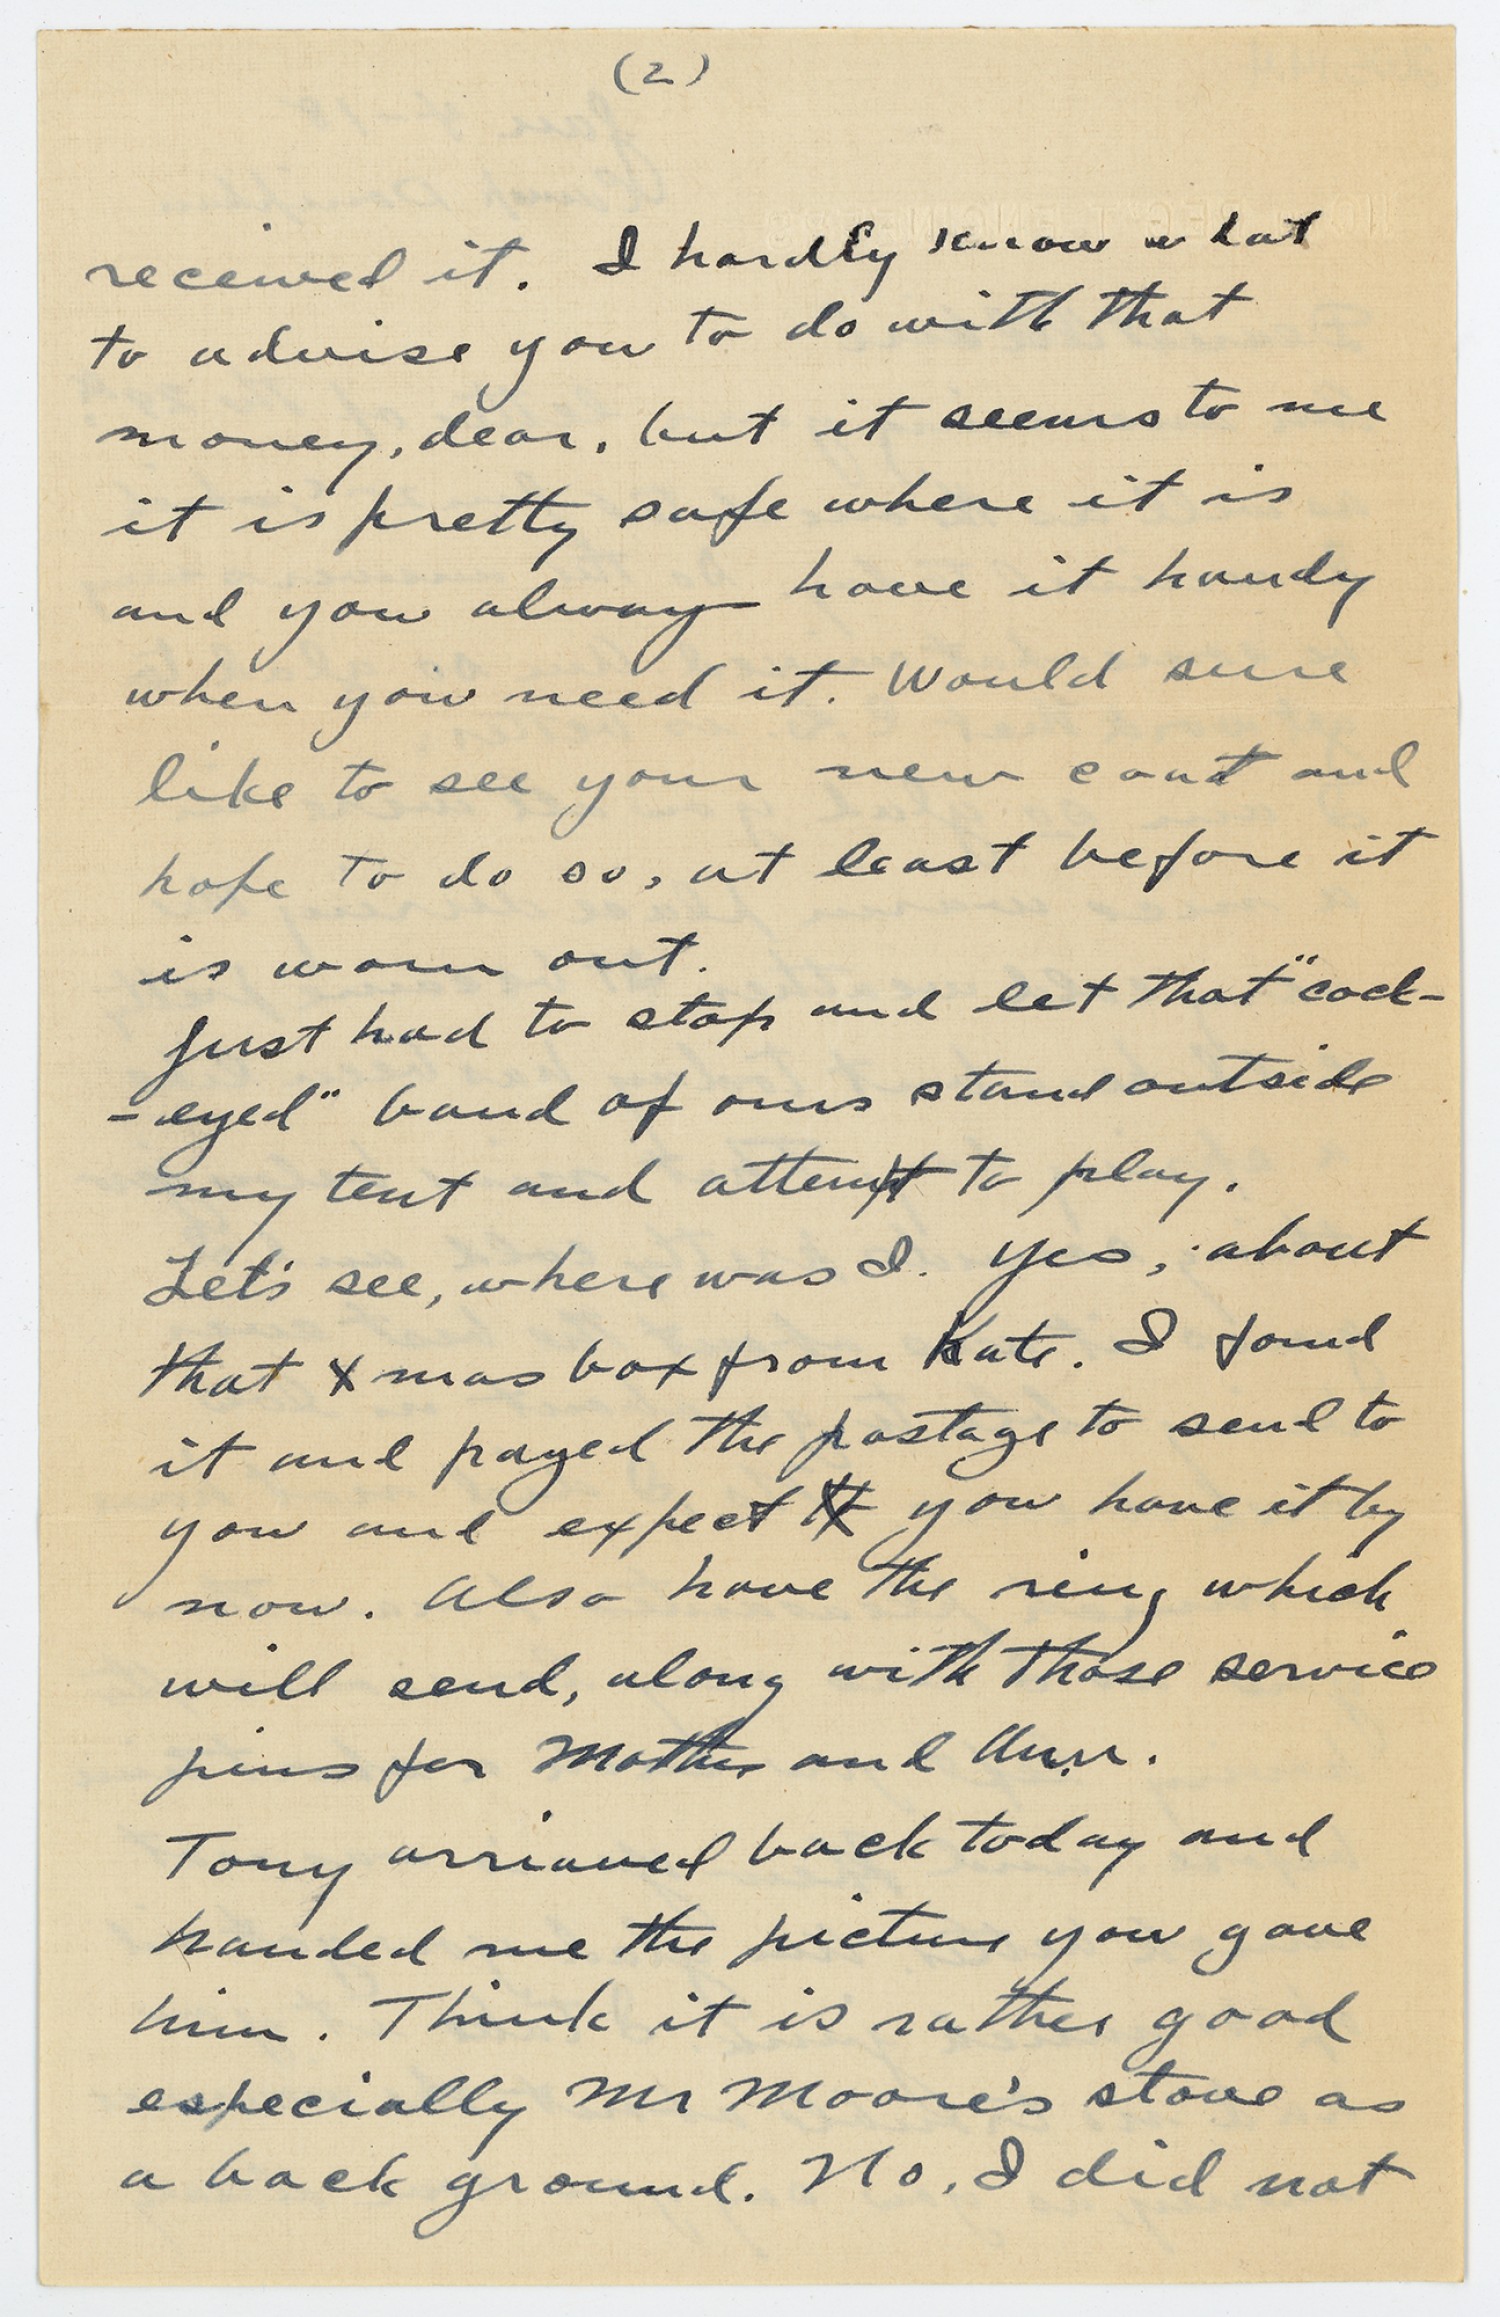 (2)
received it. I hardly know what
to advise you to do with that
money, dear, but it seems to me
it is pretty safe where it is
and you always have it handy
when you need it. Would sure
like to see your new coat and
hope to do so, at least before it
is worn out.
Just had to stop and let that "cock-
-eyed" band of ours stand outside
my tent and attempt to play.
Let's see, where was I. Yes, about
that Xmas box from Kate. I found
it and payed the postage to send to
you and expect you have it by
now. Also have the ring which
will send, along with those service
pins for Mother and Ann.
Tony arrived back today and
handed me the picture you gave
him. Think it is rather good
especially Mr Moore's stove as
a back ground. No, I did not